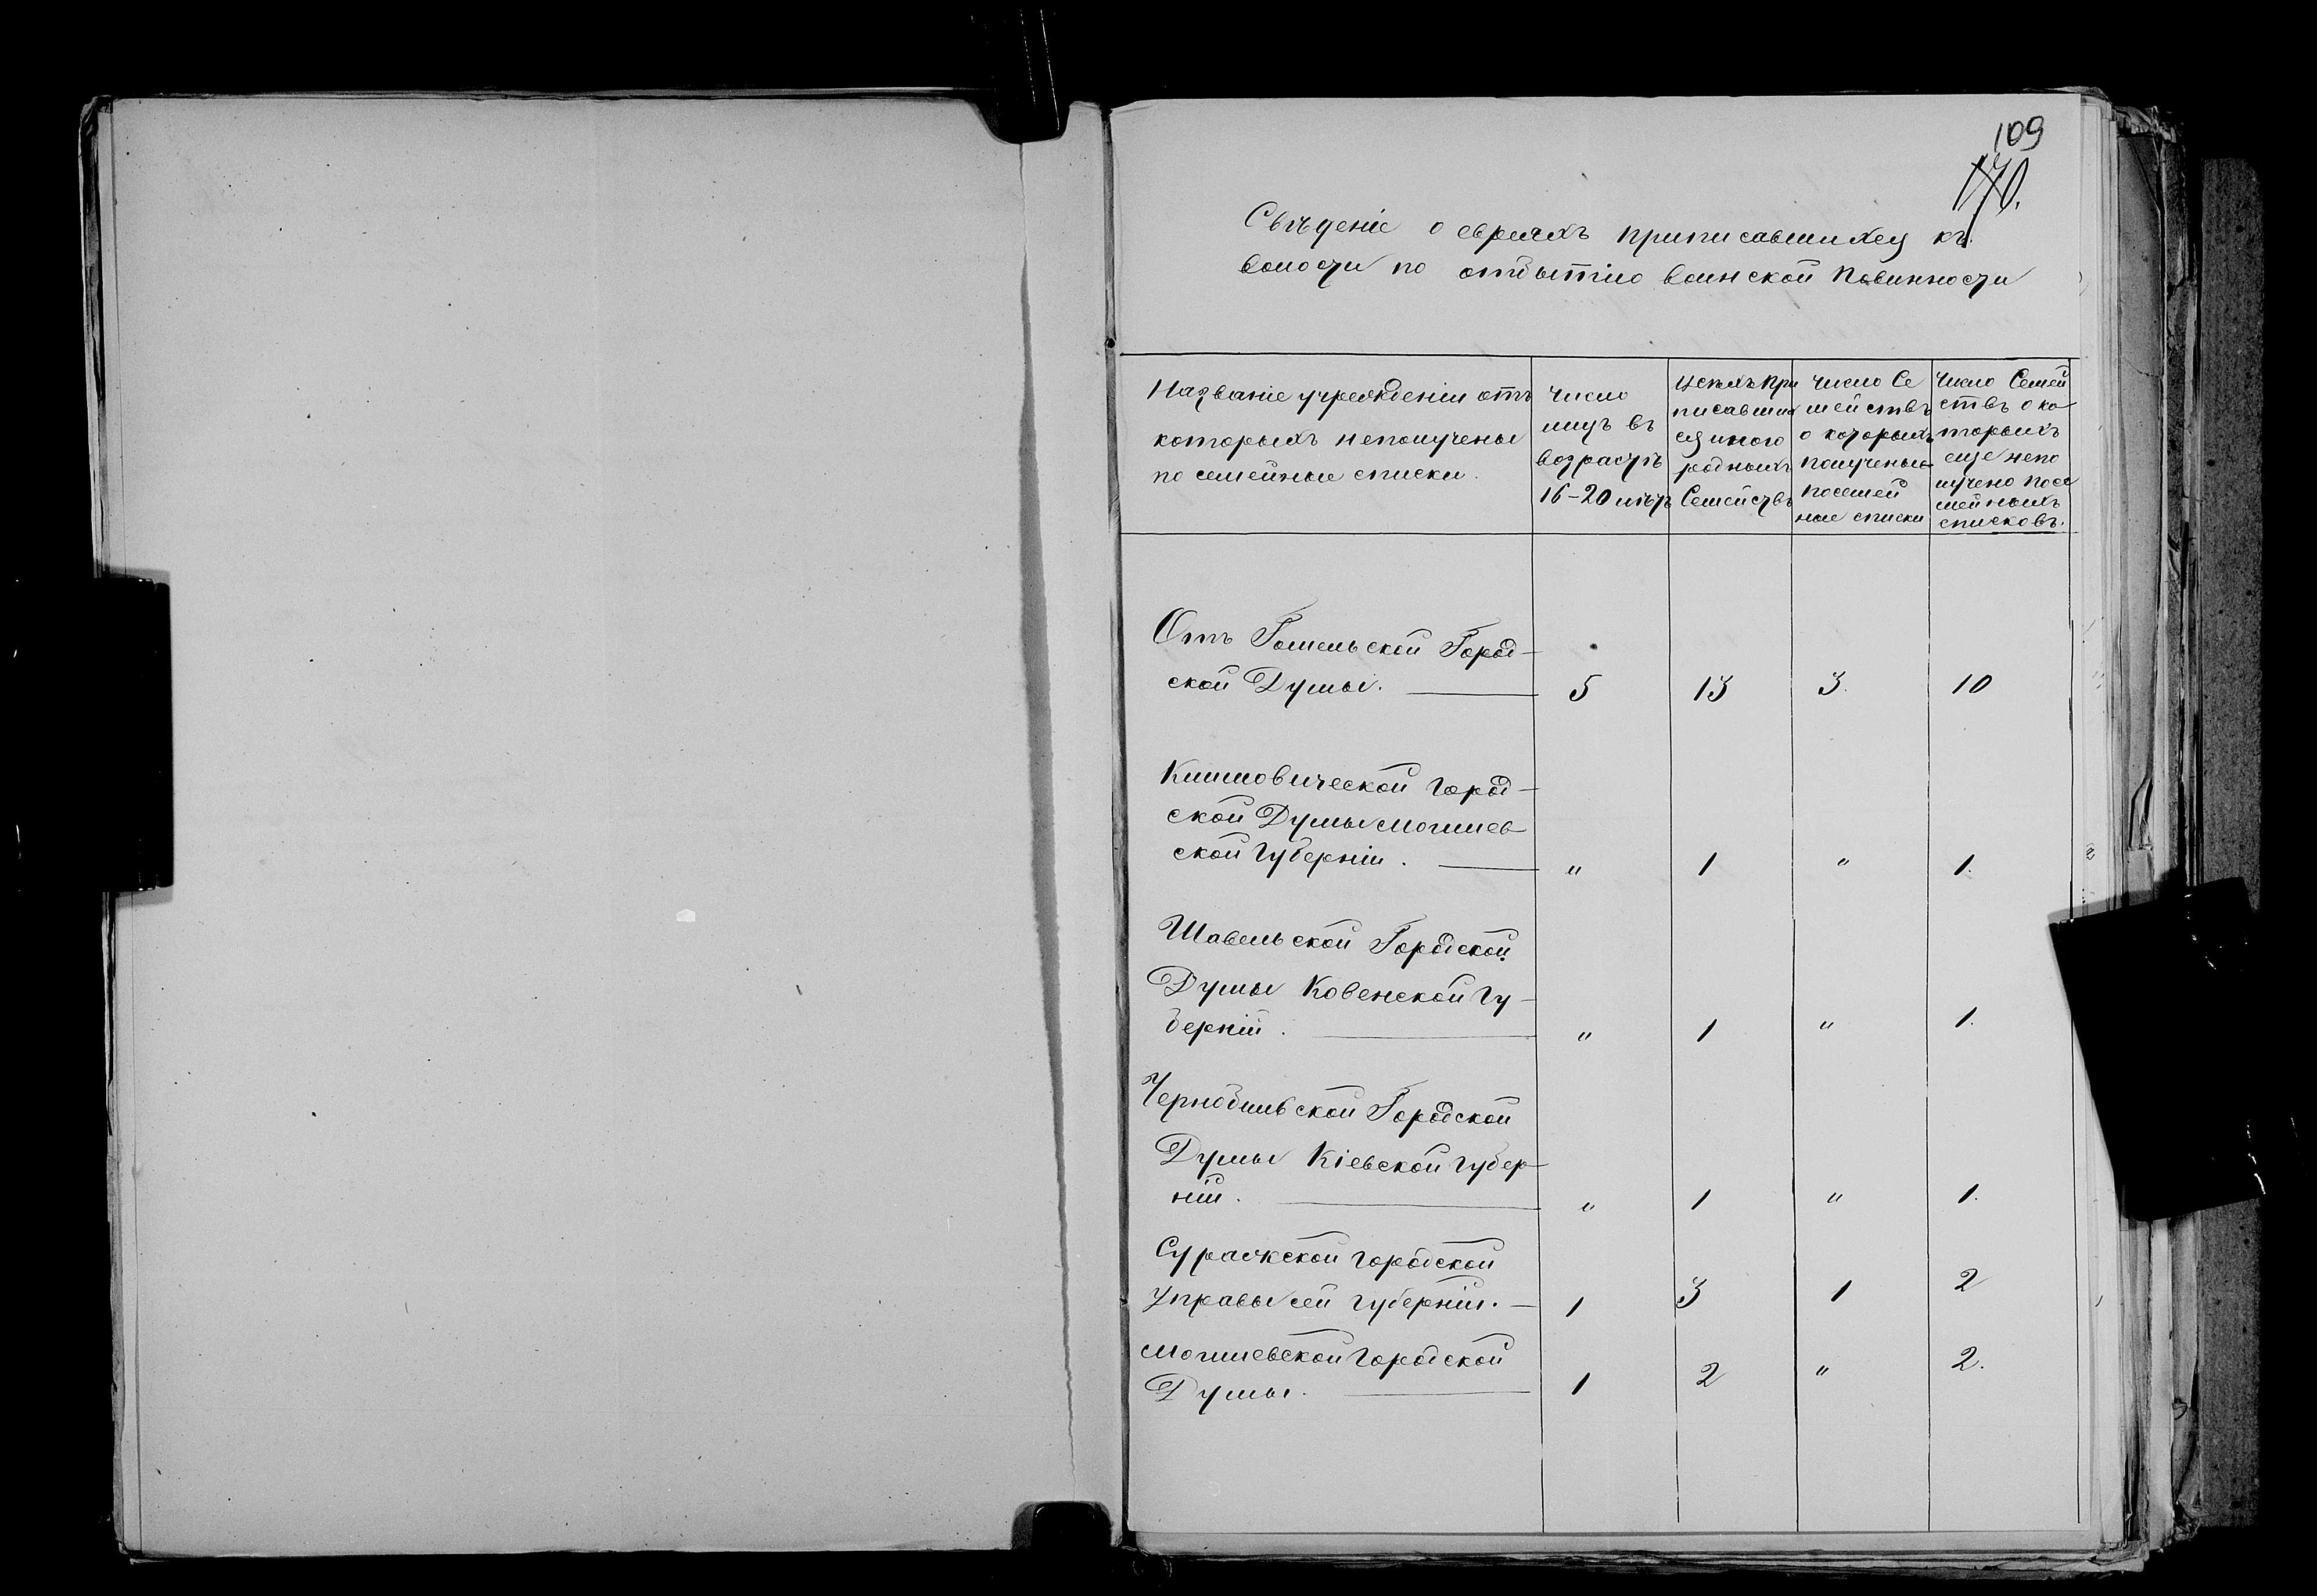 109
170.
Свѣденіе о евреяхъ приписавшихся къ
волости по отбытію воинской повинности
Названіе учрежденіи отъ
которыхъ неполучены
по семейные списки.
Число
лицъ въ
возрастѣ
16-20 лѣтъ
при
писавших
ся иного
родныхъ
Семействъ
Число Се
мействъ
о которыхъ
получены
посемей
ные списки
Число Семей
ствъ о ко
торыхъ
еще непо
лучено посе
мейныхъ
списковъ.
Отъ Гомельской Город-
ской Думы. 5 13 3. 10
Климовической город-
ской Думы Могилев
ской губерніи. " 1 " 1.
Шавельской Городской
Думы Ковенской гу-
берній. " 1 " 1.
Чернобильской Городской
Думы Кіевской губер-
ніи. " 1 " 1.
Суражской городской
Управы сей губерніи. 1 3 1 2
Могилевской городской
Думы. 1 2 " 2.